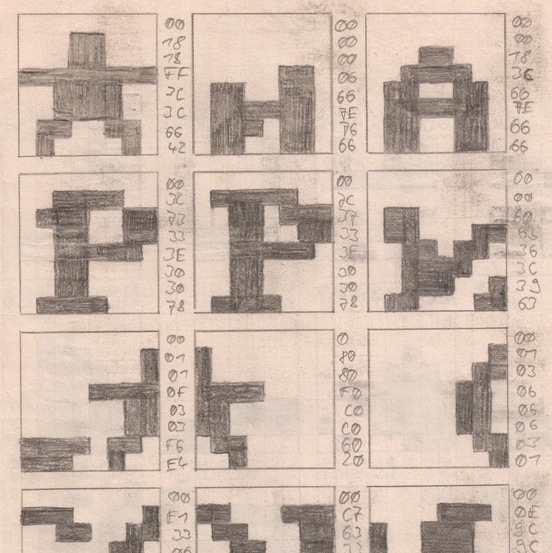 00
18
18
FF
3C
3C
66
42
00
00
00
06
66
7E
76
66
00
00
18
3C
66
7E
66
66
00
3C
73
33
3E
30
30
78
00
7C
37
33
3E
30
30
78
00
00
60
63
36
3C
39
63
00
01
01
0F
03
03
F6
E4
0
80
80
F0
C0
C0
60
20
00
01
03
06
06
06
03
01
00
E1
33
00
C7
63
00
0E
9C